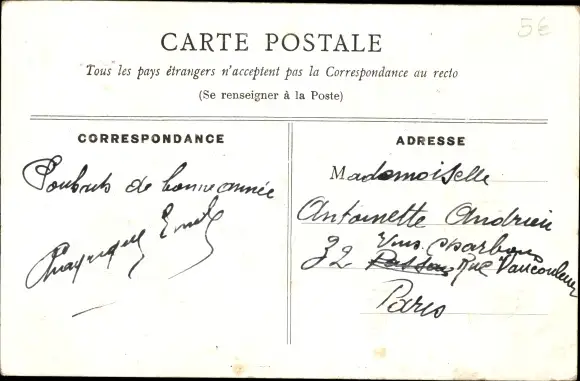 5€
CARTE POSTALE
Tous les pays étrangers n'acceptent pas la Correspondance au recto
(Se renseigner à la Poste)
CORRESPONDANCE
de bonne année
Emile
ADRESSE
Mademoiselle
Antoinette Andrieu
Vins Charbons
32 Rue Vaucouleurs
Paris